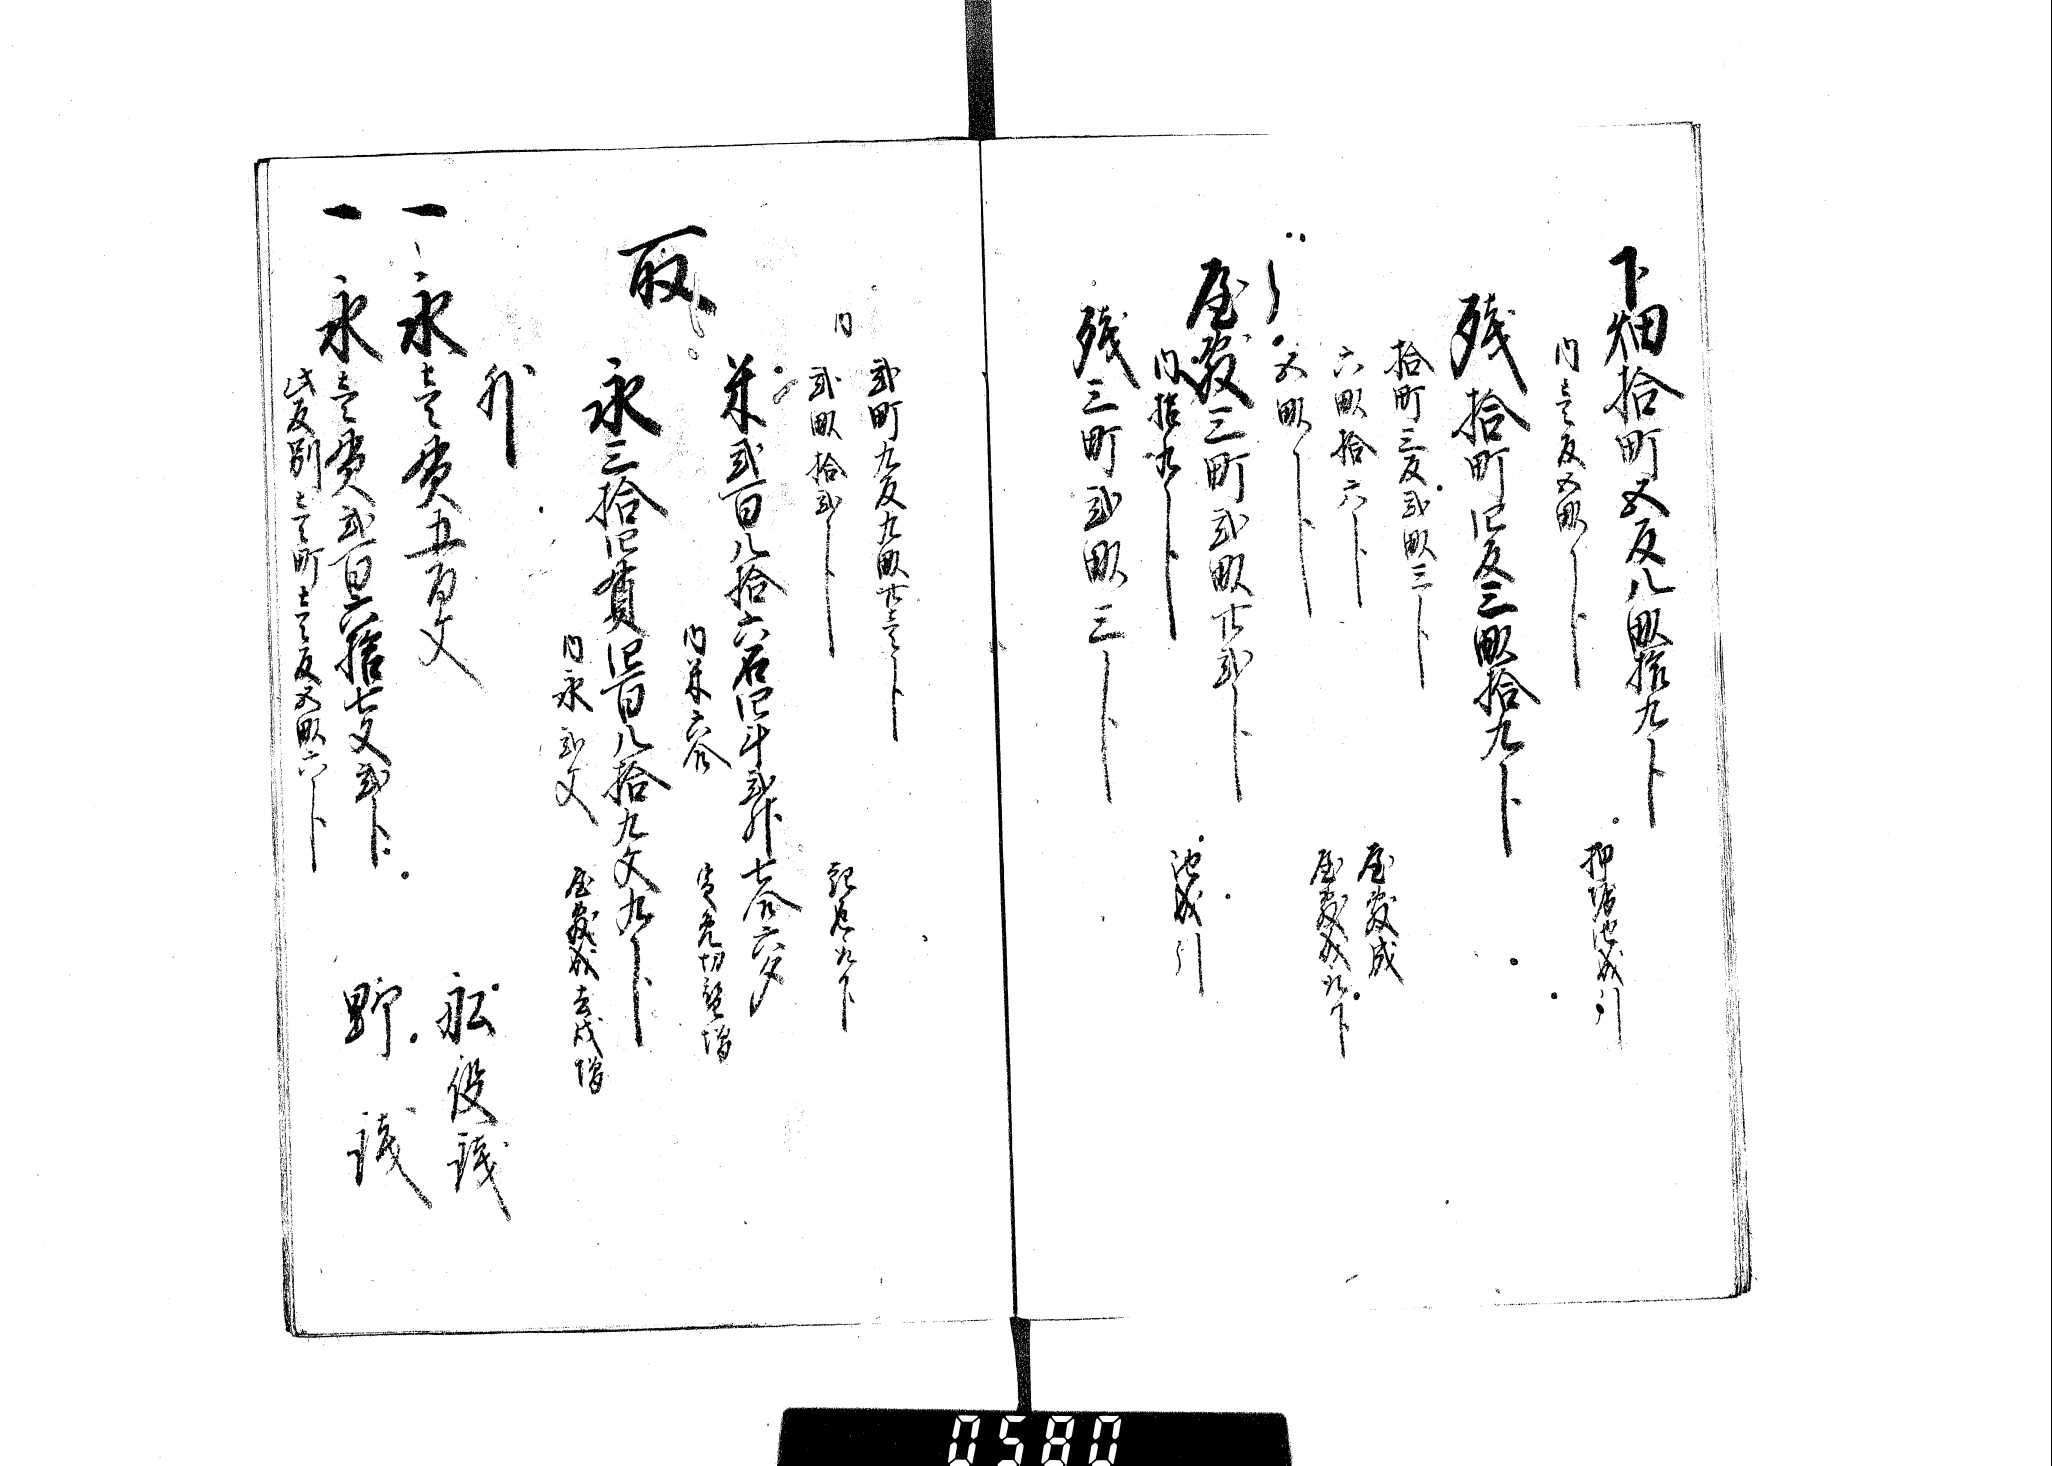 下畑拾町五反八畝拾九歩
内壱反五畝歩
押堀池成引
残拾町四反三畝拾九歩
拾町三反弐畝三歩
六畝拾六歩
屋敷成
五畝歩
屋敷成九下
屋敷三町弐畝廿弐歩
内拾九歩
池成引
残三町弐畝三歩
弐町九反九畝廿壱歩
内
弐畝拾弐歩
九下
米弐百八拾六石四斗弐升七合六夕
取
内米六合
切替増
永三拾四貫四百八拾九文九分
内永弐文
屋敷成去戌増
外
一 永壱貫五百文
船役銭
一 永壱貫弐百六拾七文弐分
野銭
此反別壱町壱反五畝六歩
0580